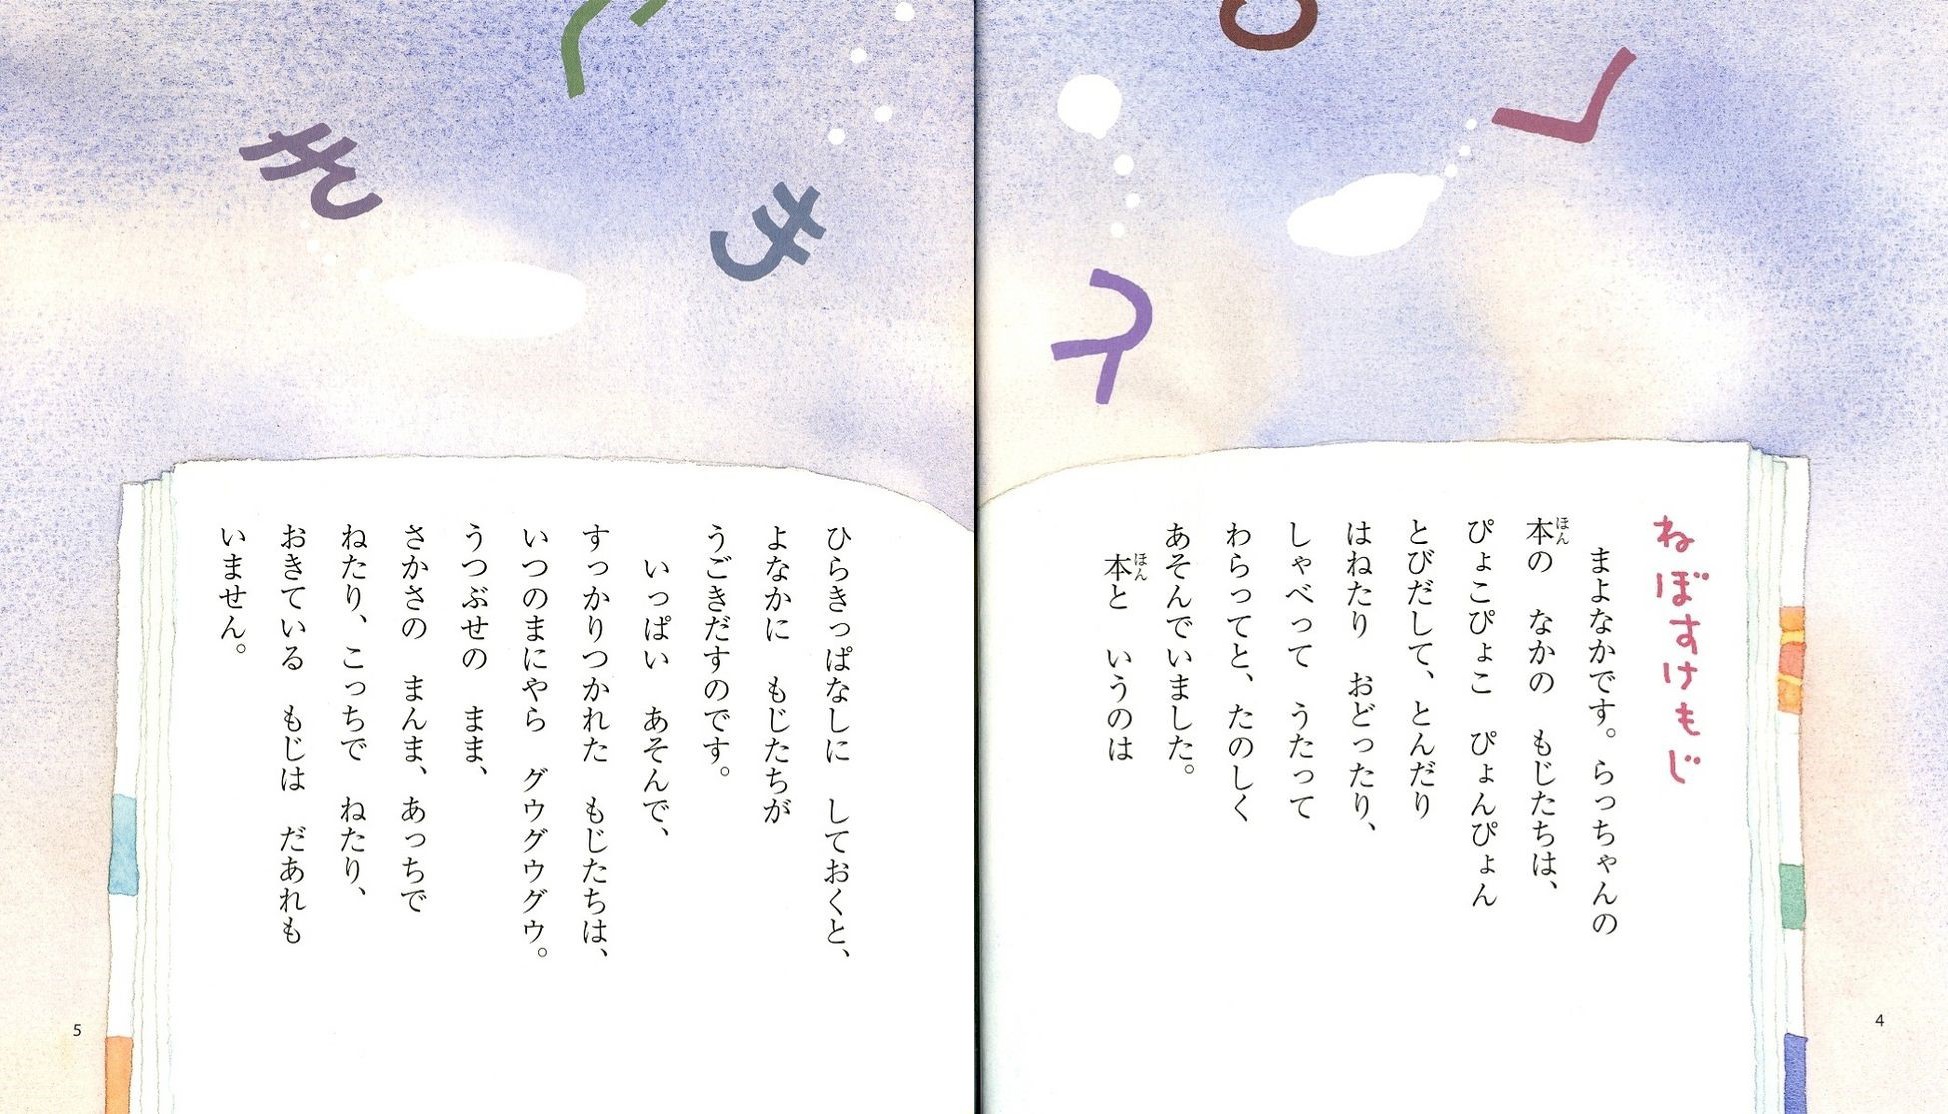 ねぼすけもじ
まよなかです。らっちゃんの
本の なかの もじたちは、
ぴょこぴょこ ぴょんぴょん
とびだして、とんだり
はねたり おどったり、
しゃべって うたって
わらってと、たのしく
あそんでいました。
本と いうのは
4
ひらきっぱなしに しておくと、
よなかに もじたちが
うごきだすのです。
いっぱい あそんで、
すっかりつかれた もじたちは、
いつのまにやら グウグウグウ。
うつぶせの まま、
さかさの まんま、あっちで
ねたり、こっちで ねたり、
おきている もじは だあれも
いません。
5